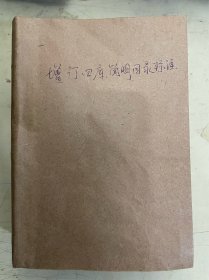 增订四库简明目录标注